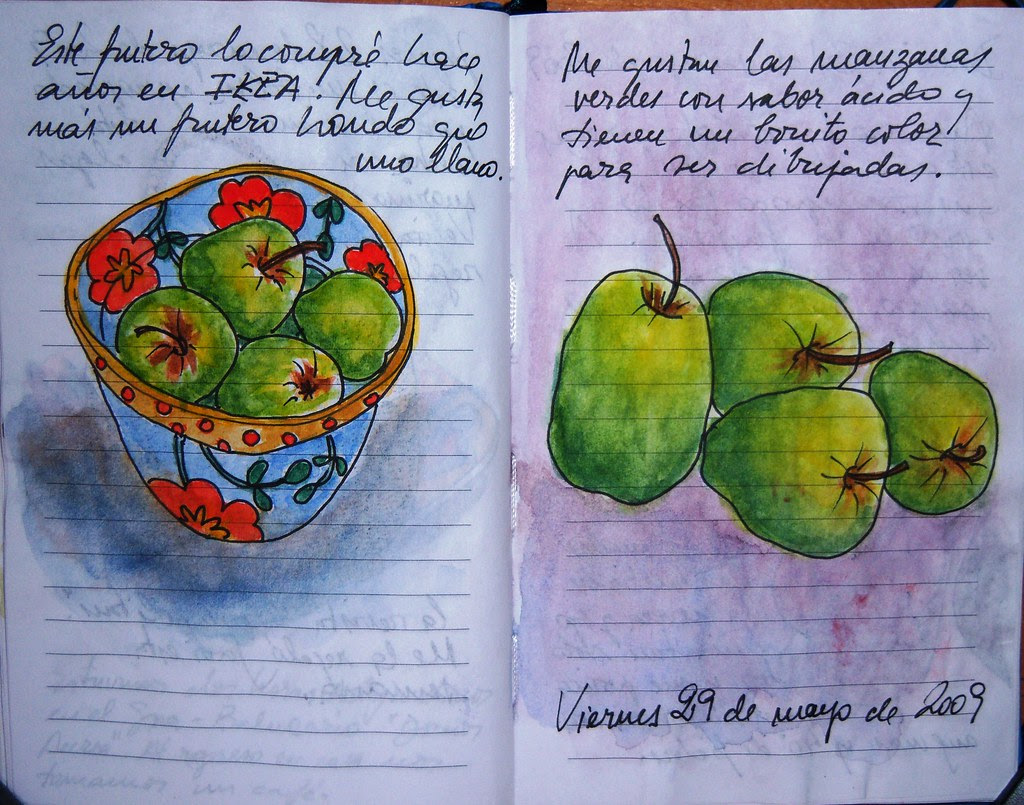 Este frutero lo compré hace
años en IKEA. Me gusta
más un frutero hondo que
uno llano.
Me gustan las manzanas
verdes con sabor ácido y
tienen un bonito color
para ser dibujadas.
Viernes 29 de mayo de 2009